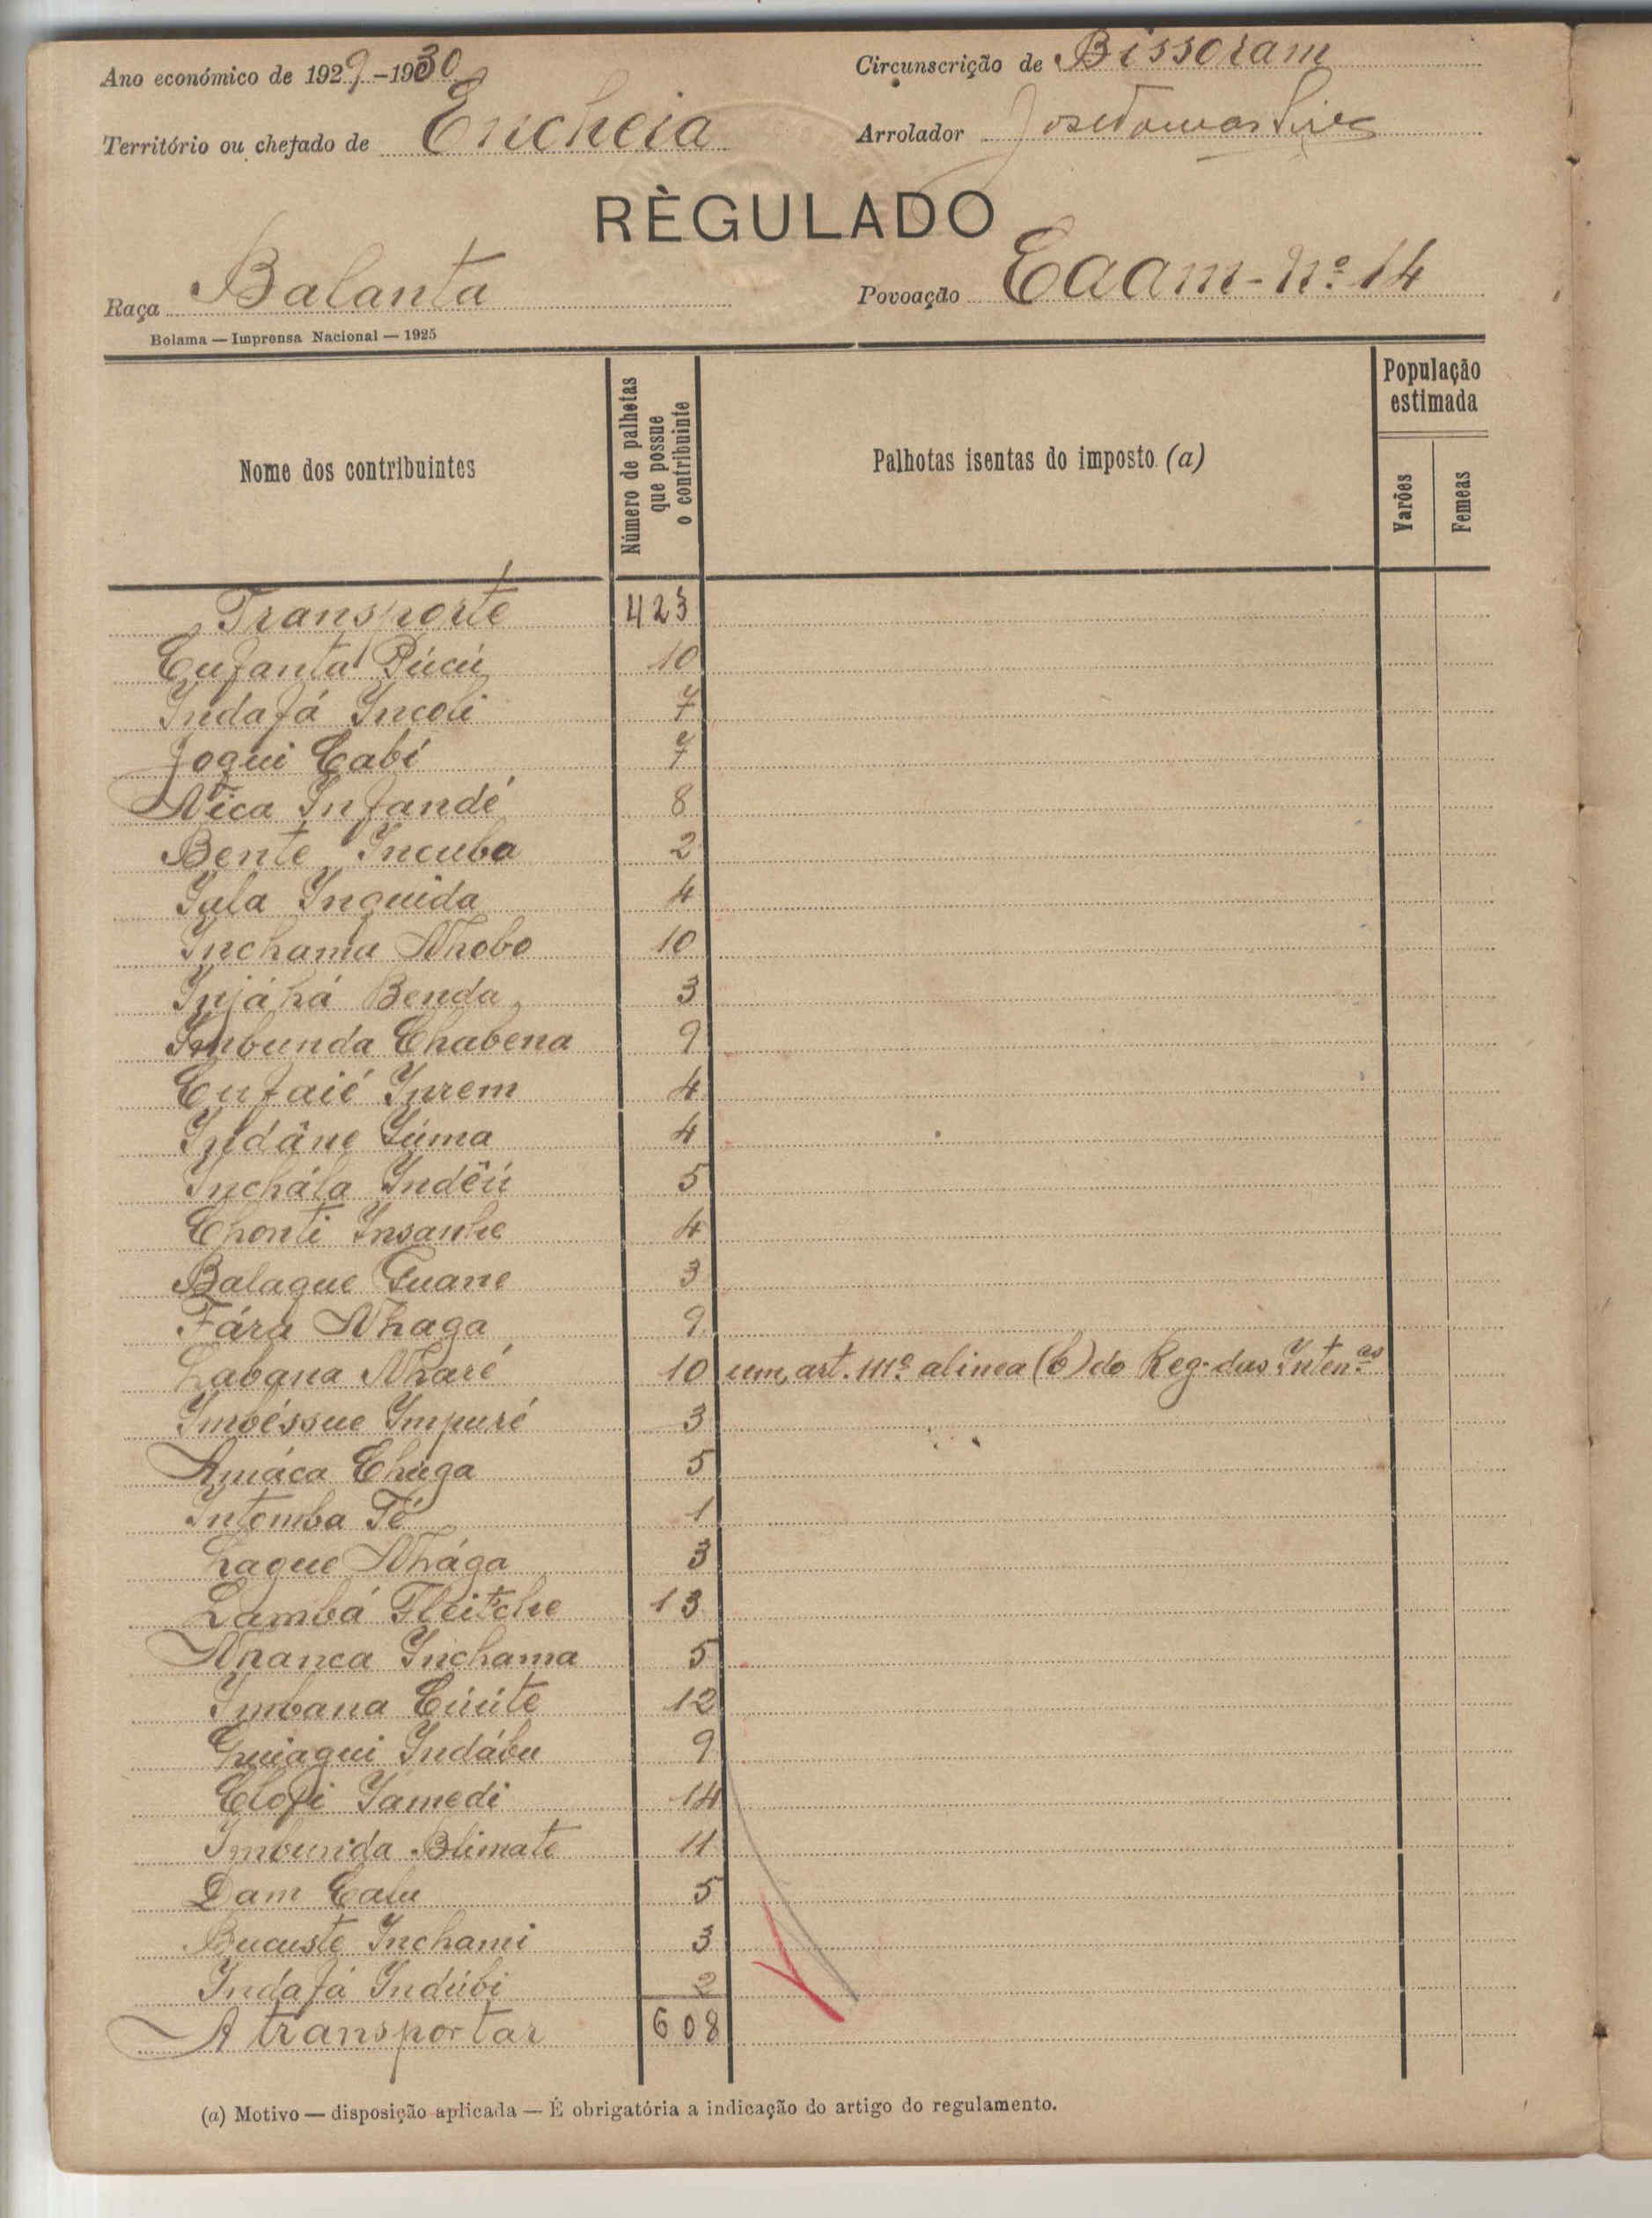 Ano económico de 1929-1930
Circunscrição de Bissoram
Território ou chefado de Encheia
Arrolador
RÈGULADO
Raça Balanta
Povoação Caam - nº 14
Bolama — Imprensa Nacional — 1925
Nome dos contribuintes
Número de palhotas que possue o contribuinte
Palhotas isentas do imposto (a)
População estimada
Varões
Femeas
Transporte 423
Cufanta Púcú 10
Indafá Incoli 7
Joqui Cabi 7
Nica Infandé 8
Bente Incuba 2
Iula Inquida 4
Inchama Nhobo 10
Injáhá Benda 3
Imbunda Chabena 9
Cufaié Inrem 4
Indâne Lúma 4
Inchála Indêú 5
Chonti Insanhe 4
Balaque Guane 3
Fára Nhaga 9
Labana Nharé 10 um, art. 111º alinea (b) do Reg. das Inten.as
Imbéssue Impuré 3
Amáca Chuga 5
Intomba Té 1
Laque Nhága 3
Lambá Fleitche 13
Nhanca Inchama 5
Imbana Cúúte 12
Indábu 9
Clofi Iamedi 14
Imbunda Blimate 11
Dam Calu 5
Bucuste Inchami 3
Indafá Indúbi 2
A transportar 608
(a) Motivo — disposição aplicada — É obrigatória a indicação do artigo do regulamento.